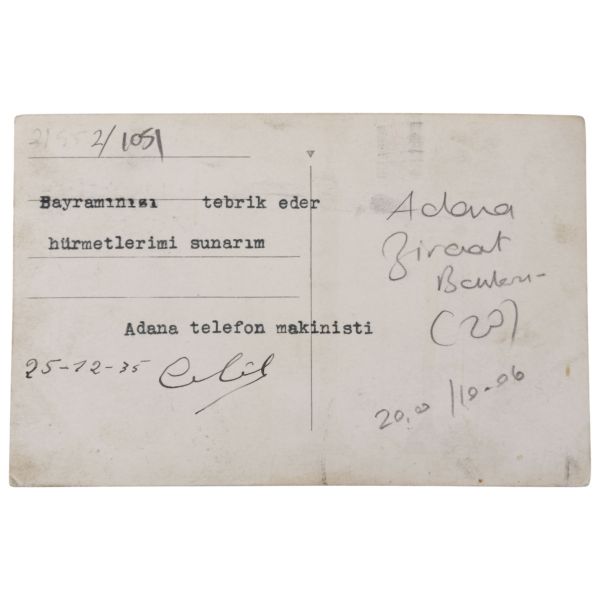 2/1051
Bayramınızı tebrik eder
hürmetlerimi sunarım
Adana telefon makinisti
25-12-35
Adana
Ziraat
(20)
20,00 /10-06